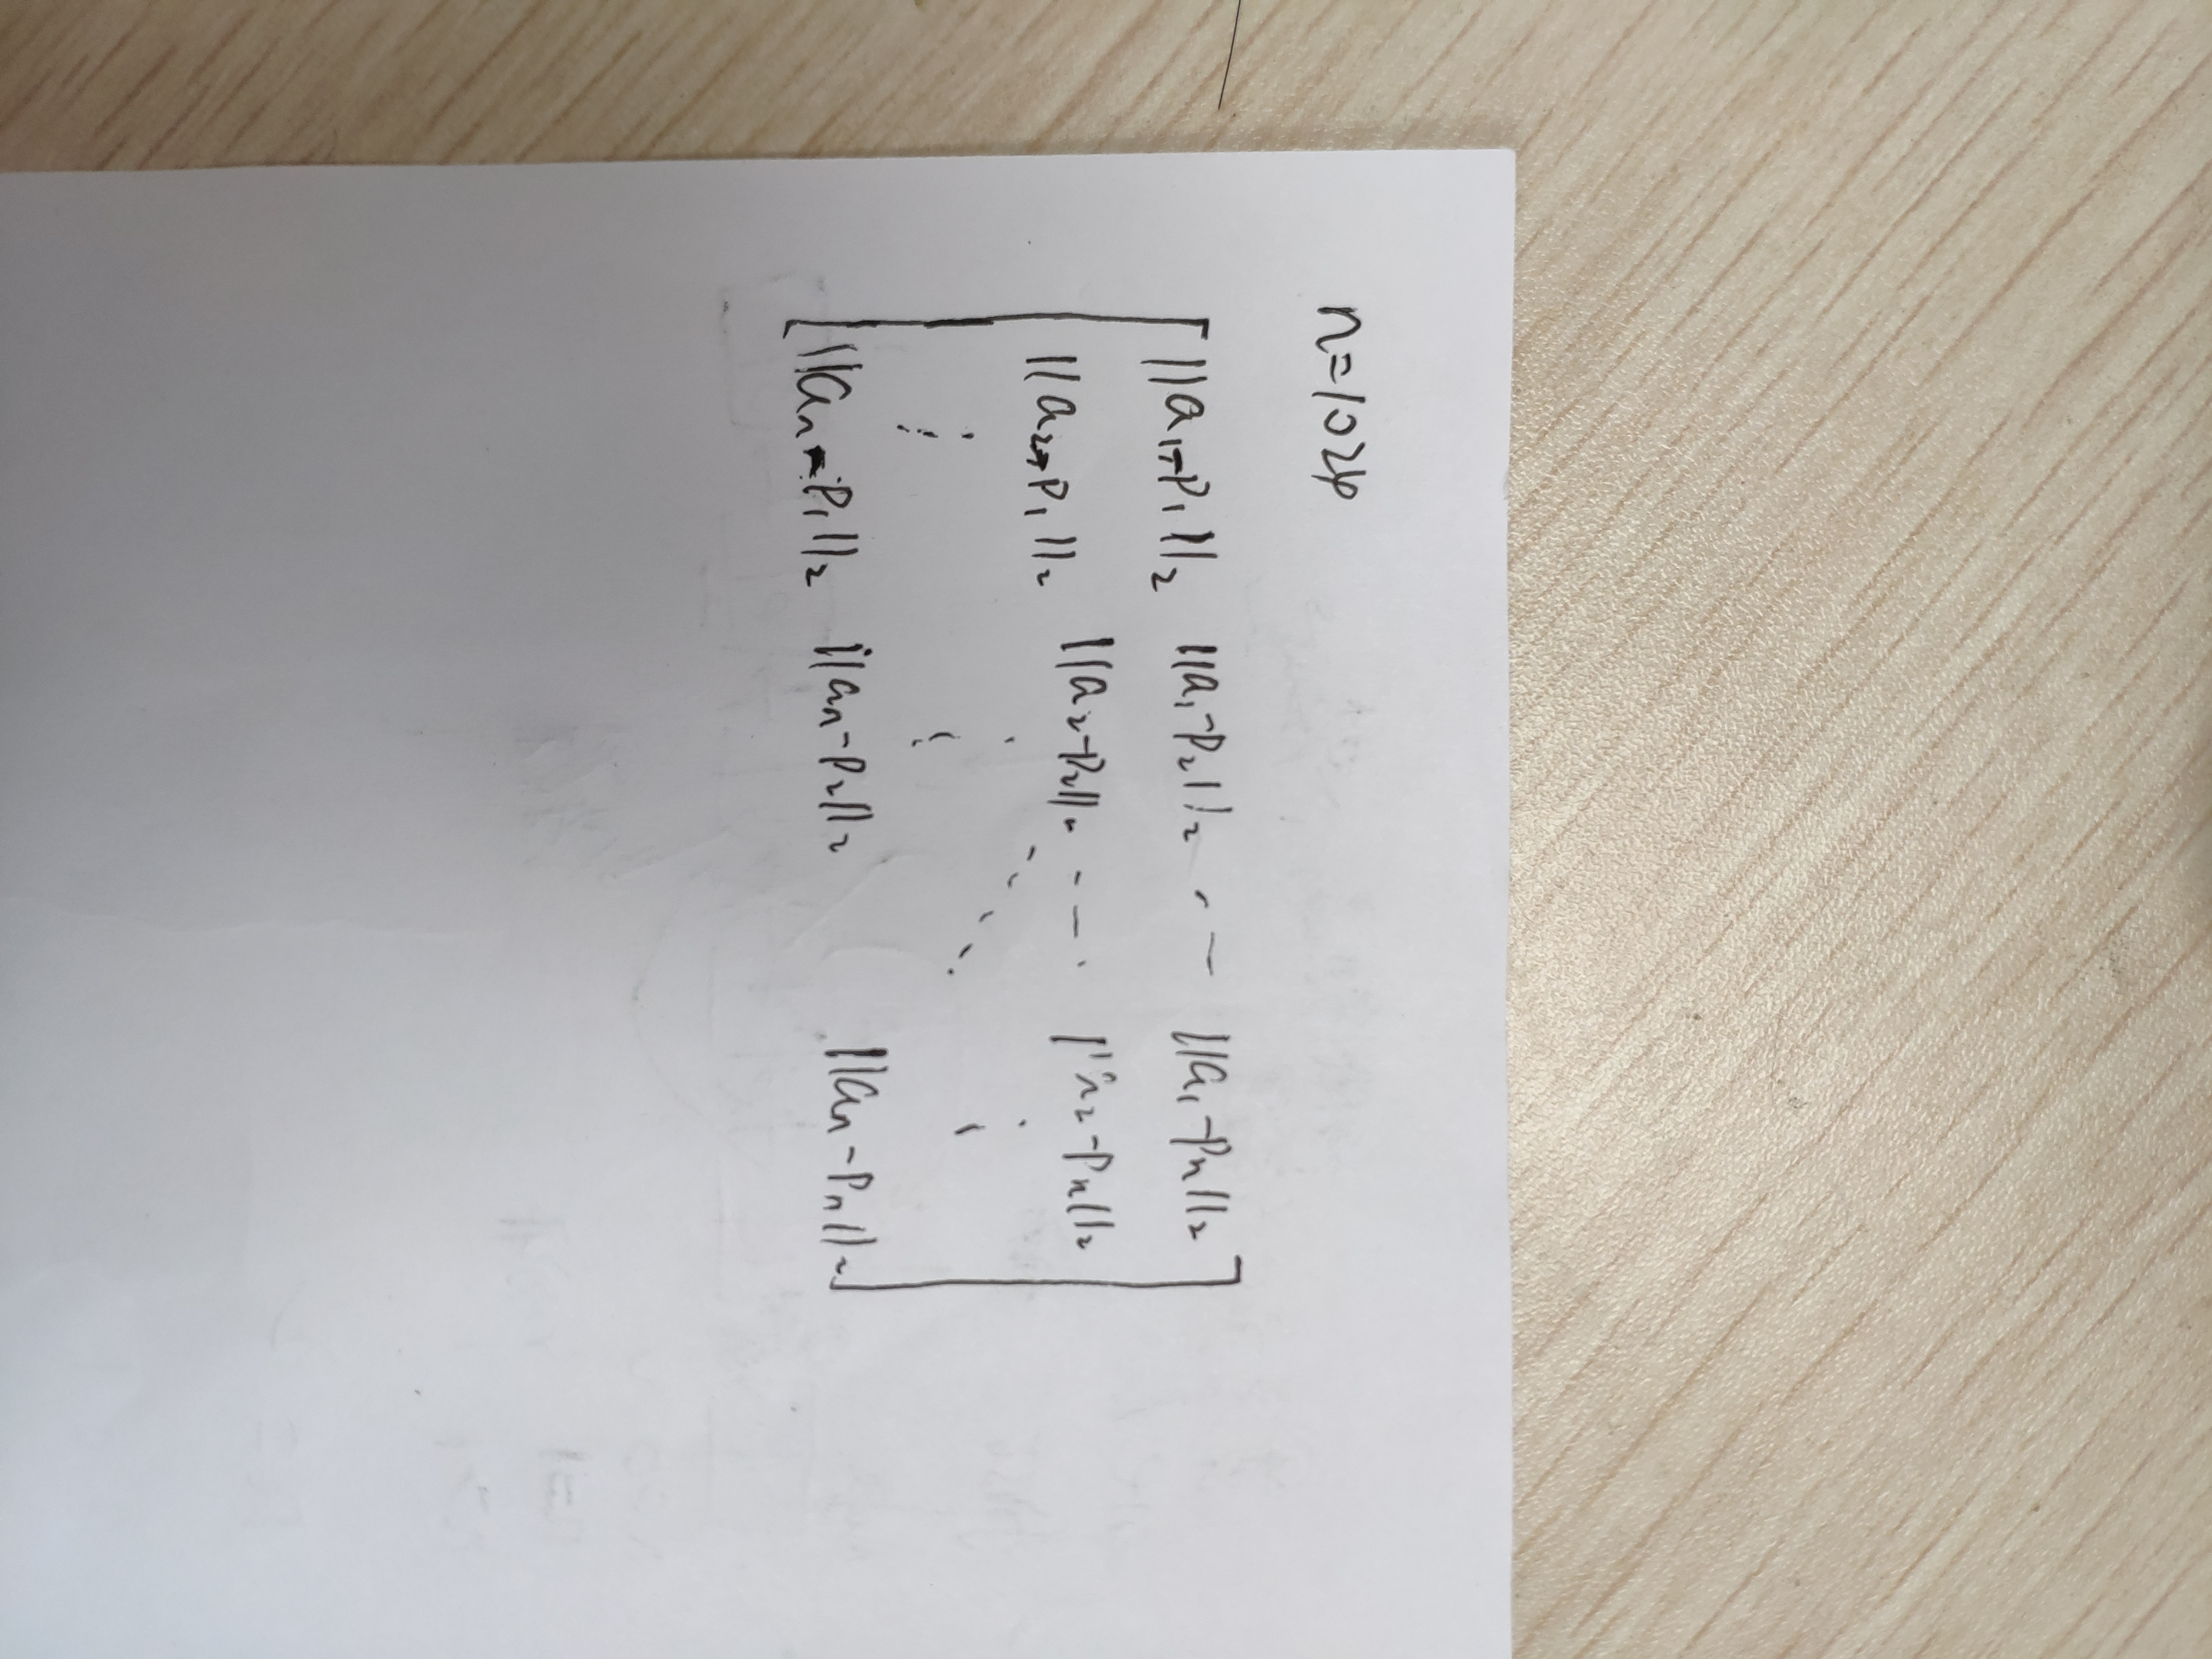 n=1024
||a₁-P₁||₂ ||a₁-P₂||₂ - — ||a₁-Pn||₂
||a₂-P₁||₂ ||a₂-P₂||₂ - — . ||a₂-Pn||₂
||an-P₁||₂ ||an-P₂||₂ ||an-Pn||₂